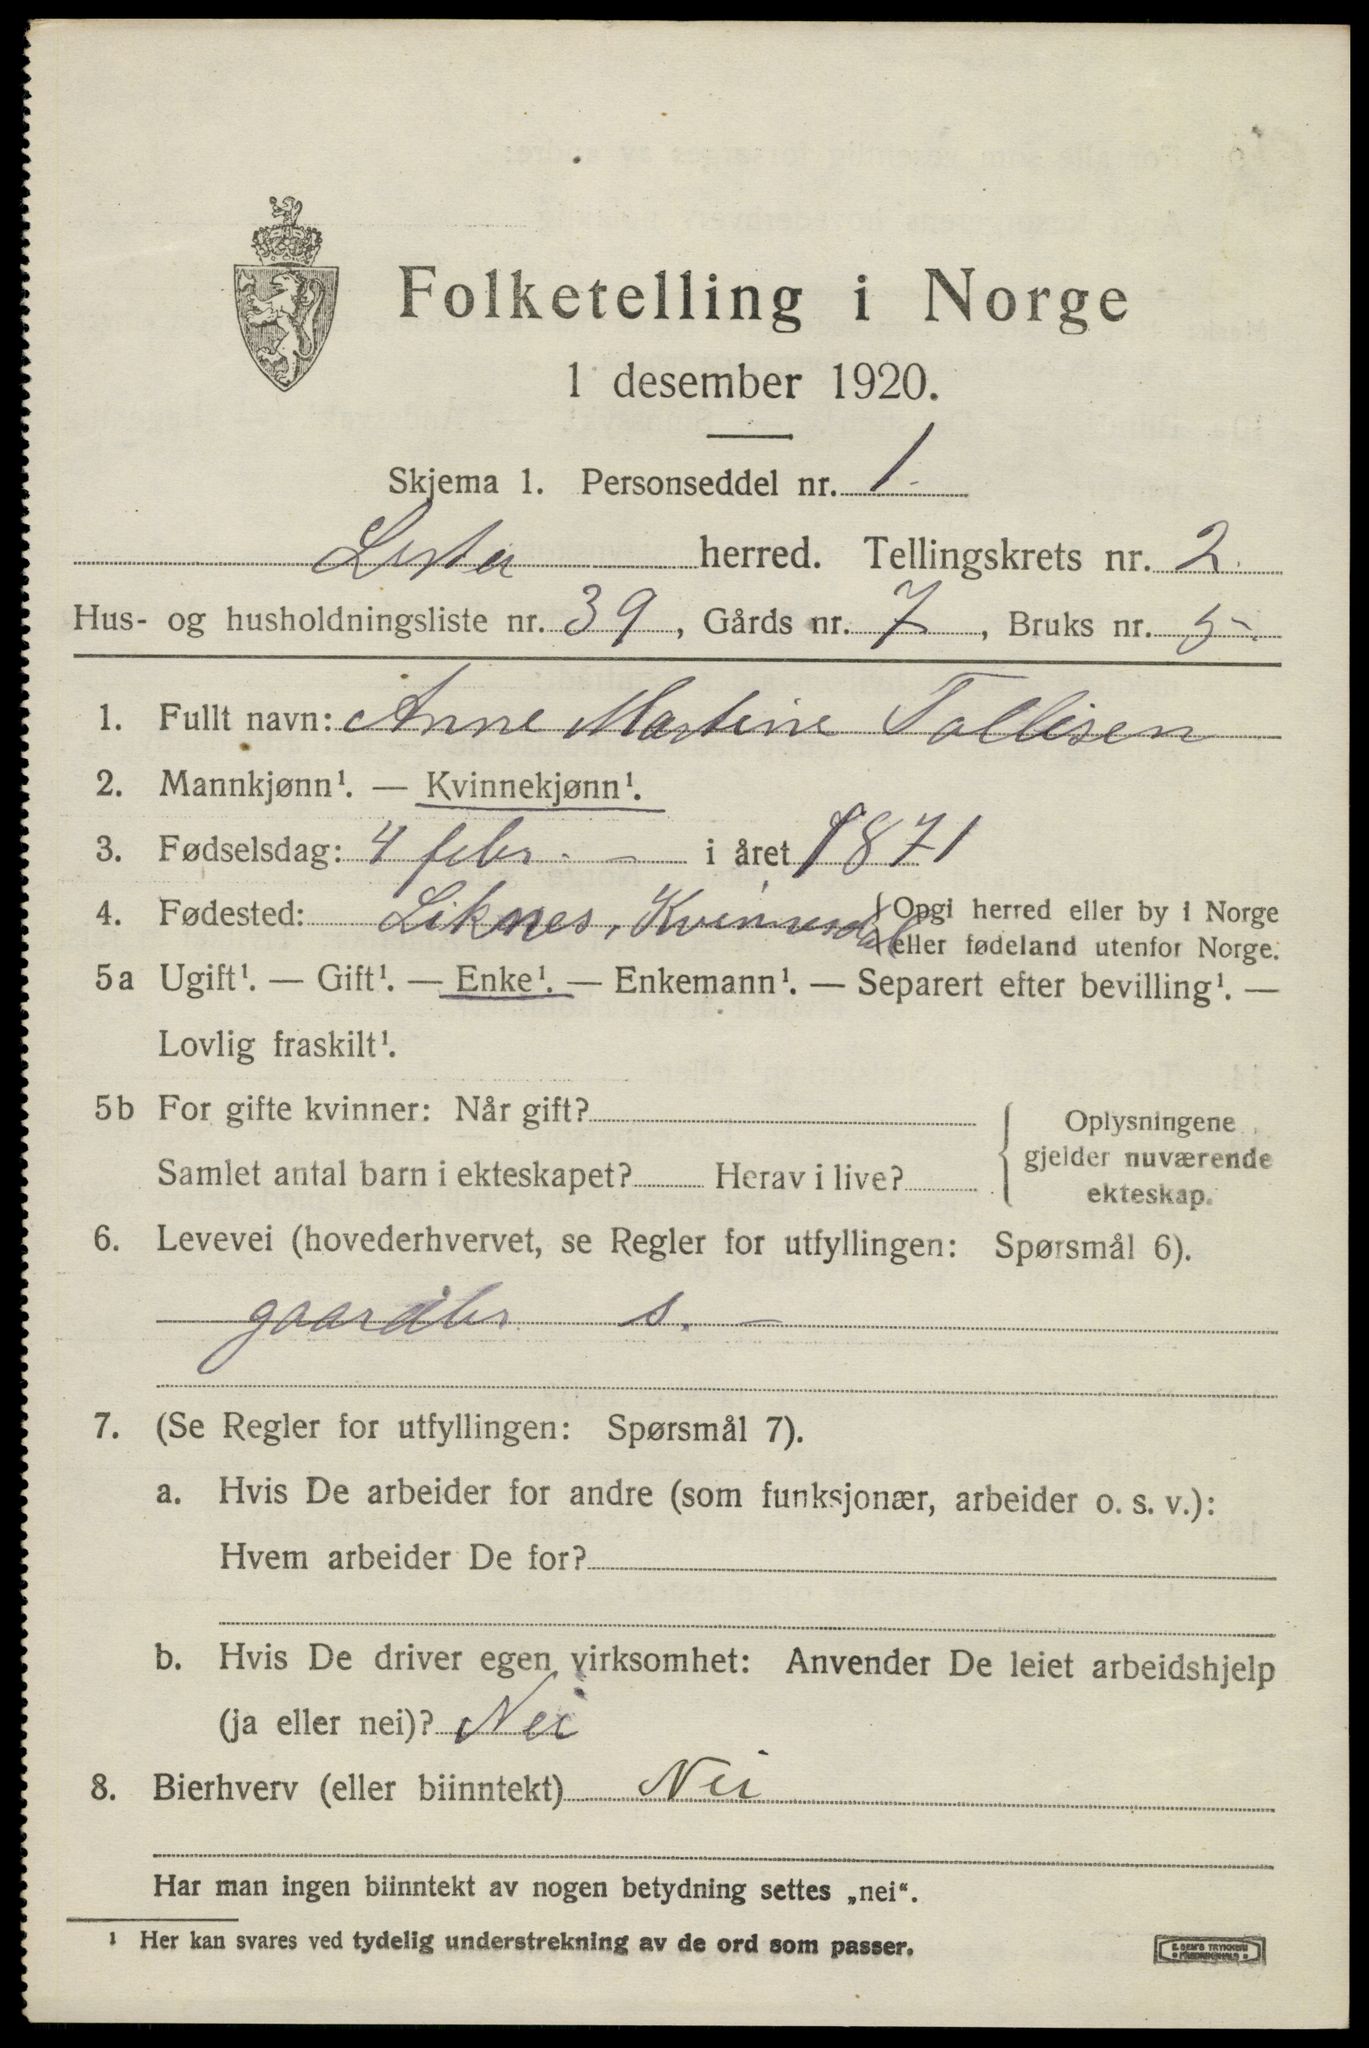 Folketelling i Norge
1 desember 1920.
Skjema 1. Personseddel nr. 1.
Lista herred. Tellingskrets nr. 2.
Hus- og husholdningsliste nr. 39, Gårds nr. 7, Bruks nr. 5.
1. Fullt navn: Anne Martine Tollisen
2. Mannkjønn¹. — Kvinnekjønn¹.
3. Fødselsdag: 4 febr. – i året 1871
4. Fødested: Liknes, Kvinnesdal {Opgi herred eller by i Norge
eller fødeland utenfor Norge.
5a Ugift¹. — Gift¹. — Enke¹. — Enkemann¹. — Separert efter bevilling¹. —
Lovlig fraskilt¹.
5b For gifte kvinner: Når gift?
Samlet antal barn i ekteskapet? Herav i live?
{ Oplysningene
gjelder nuværende
ekteskap.
6. Levevei (hovederhvervet, se Regler for utfyllingen: Spørsmål 6).
gaardbr s. –
7. (Se Regler for utfyllingen: Spørsmål 7).
a. Hvis De arbeider for andre (som funksjonær, arbeider o. s. v.):
Hvem arbeider De for?
b. Hvis De driver egen virksomhet: Anvender De leiet arbeidshjelp
(ja eller nei)? Nei
8. Bierhverv (eller biinntekt) Nei
Har man ingen biinntekt av nogen betydning settes „nei“.
¹ Her kan svares ved tydelig understrekning av de ord som passer.